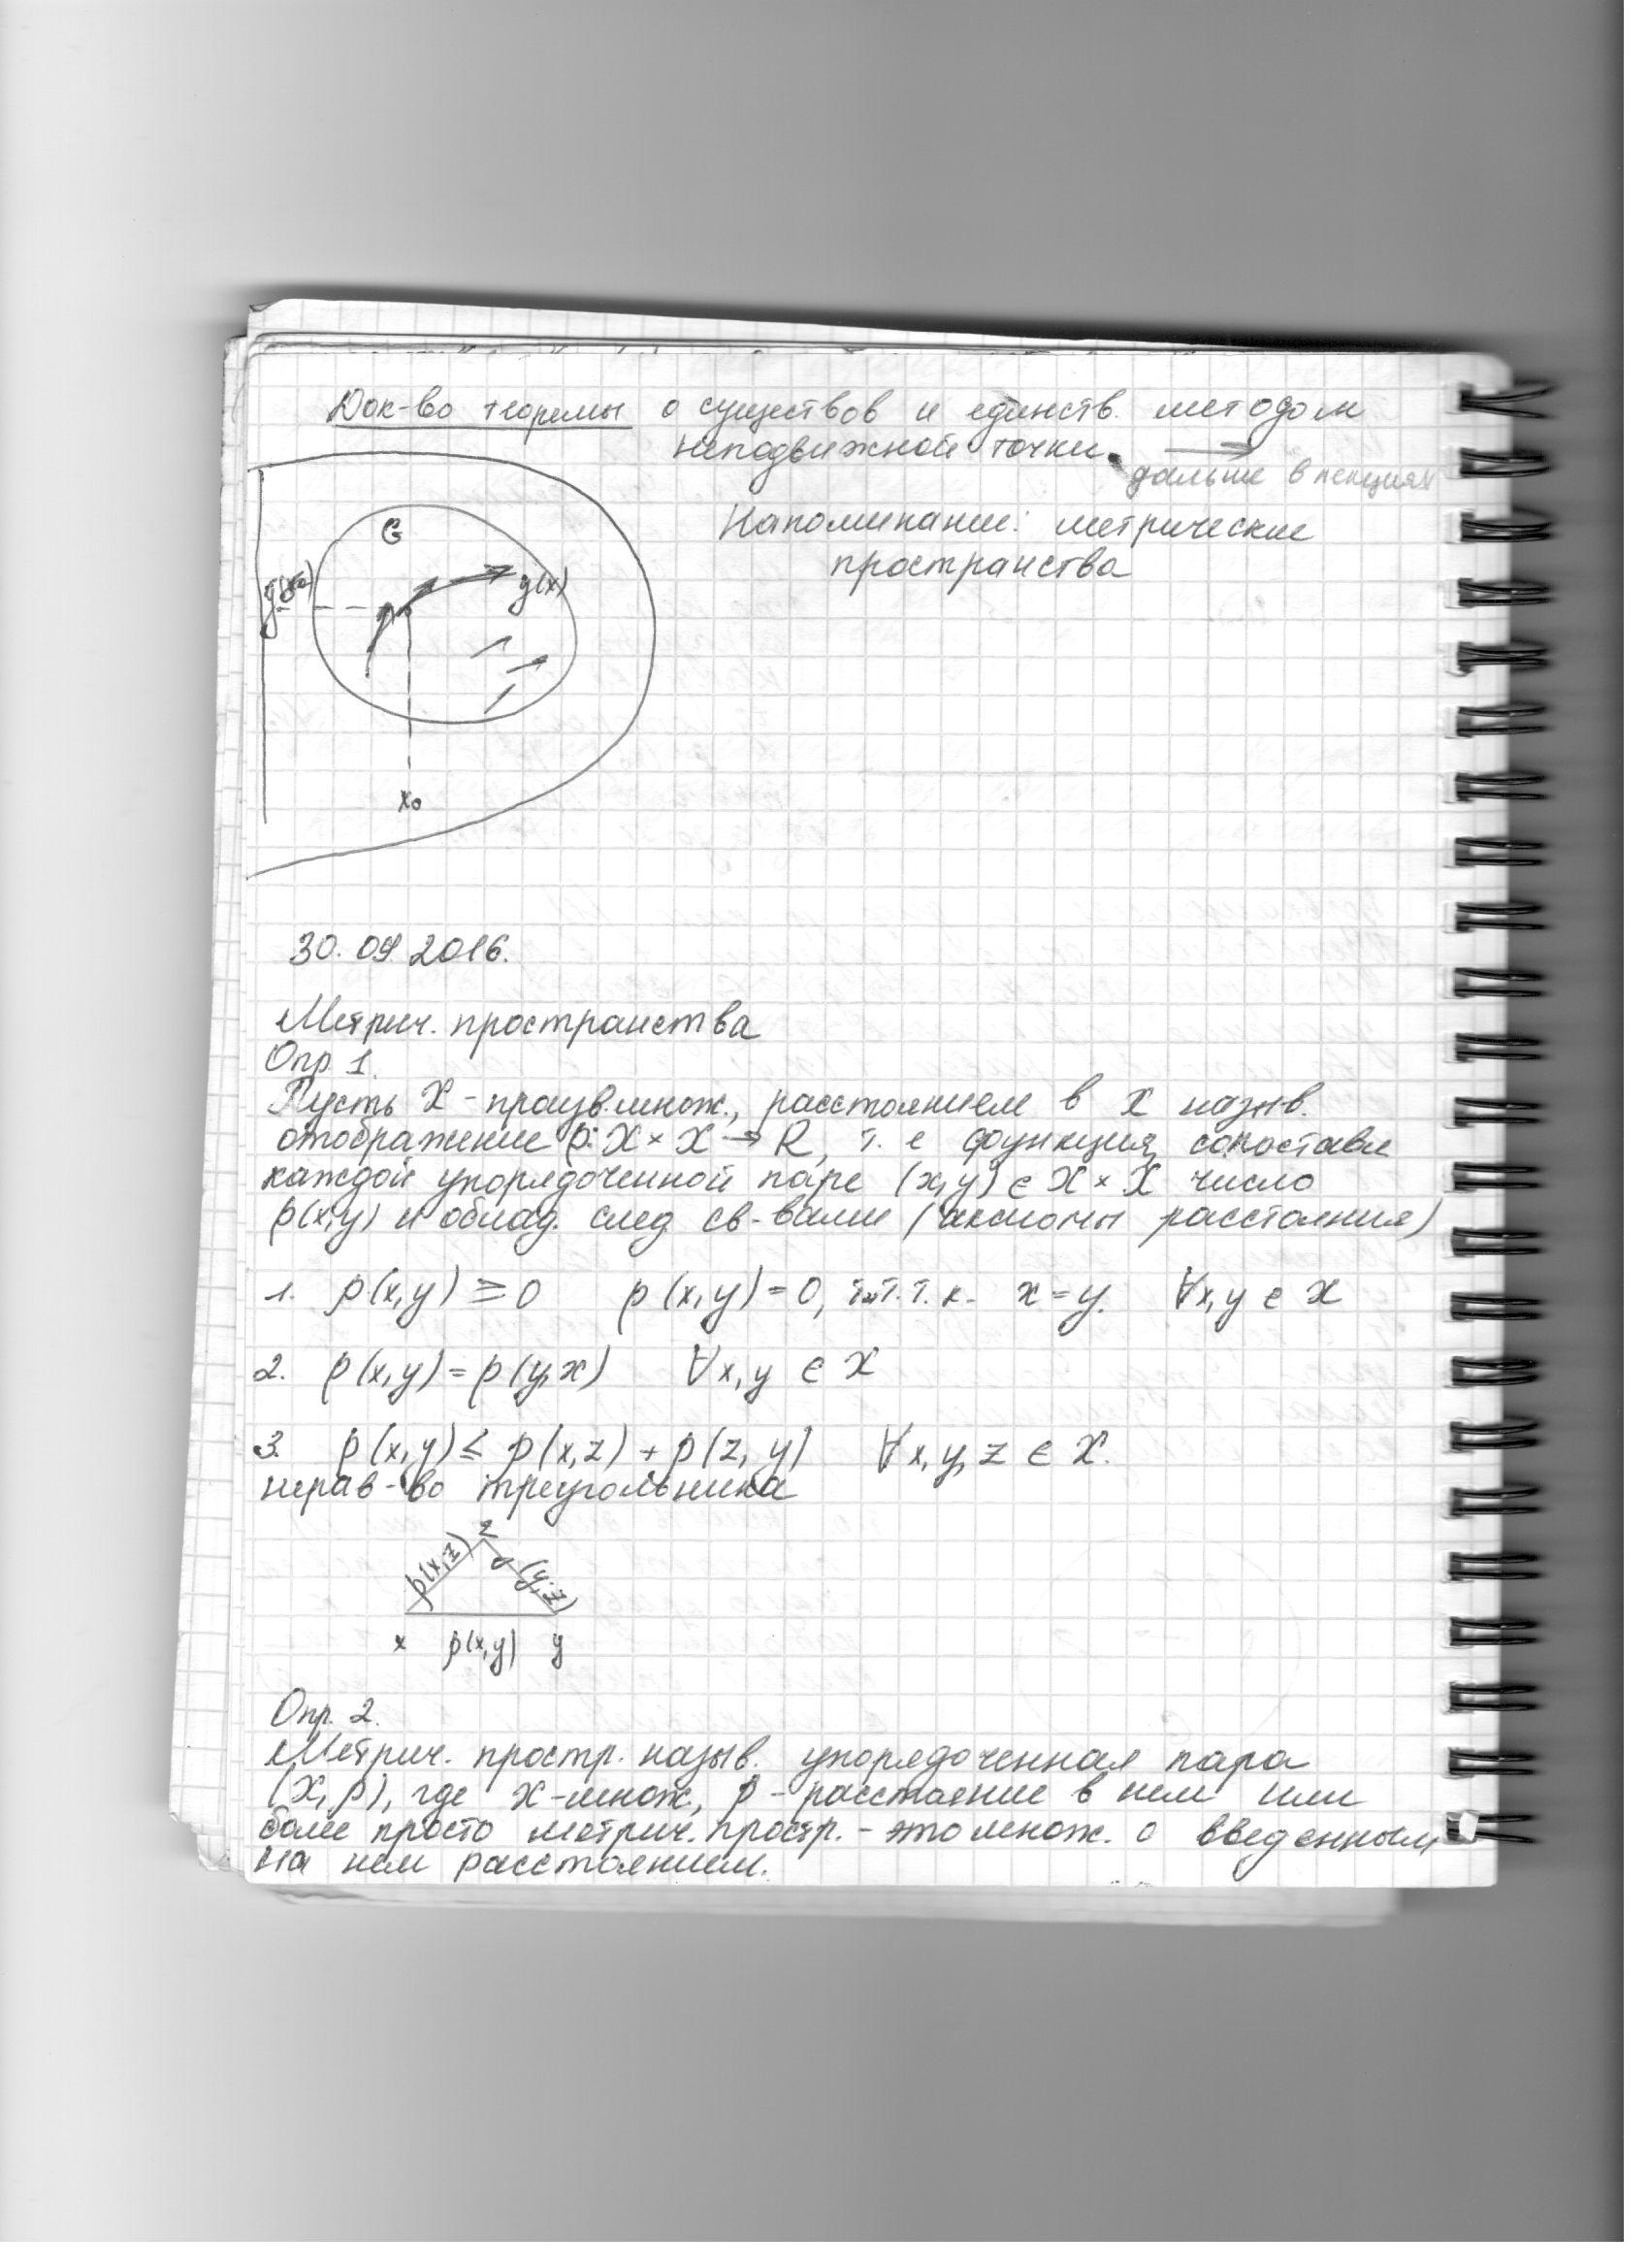 Док-во теоремы о существов и единств. методом
неподвижной точки. →
дальше в лекциях
Напоминание: метрические
пространства
G
y(x)
x₀
30.09 2016.
Метрич. пространства
Опр 1.
Пусть X - произв. множ., расстоянием в X назыв.
отображение ρ: X × X → R, т. е функция, сопоставл
каждой упорядоченной паре (x,y) ∈ X × X число
ρ(x,y) и облад. след св-вами (аксиомы расстояния)
1. ρ(x,y) ≥ 0 ρ(x,y) = 0, т.т.т.к. x = y. ∀x,y ∈ X
2. ρ(x,y) = ρ(y,x) ∀x,y ∈ X
3. ρ(x,y) ≤ ρ(x,z) + ρ(z,y) ∀x,y,z ∈ X.
нерав-во треугольника
z
ρ(x,z) ρ(y,z)
x ρ(x,y) y
Опр. 2.
Метрич. простр. назыв. упорядоченная пара
(X, ρ), где X-множ, ρ - расстояние в нем или
более просто метрич. простр. - это множ. с введенным
на нем расстоянием.